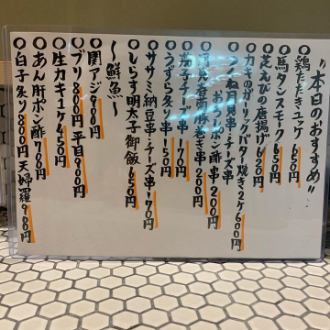 "本日のおすすめ"
○鶏たたきユッケ 650円
○馬タンスモーク 650円
○芝えびの唐揚げ 620円
○カキのガーリックバター焼き2ケ600円
チーズ串
200円
串 200円
○茄子チーズ串 170円
○うずら炙り串 150円
○ササミ納豆串・チーズ串 170円
○しらす明太子御飯 650円
〜鮮魚〜
○関アジ900円
○ブリ 800円 平目900円
○生カキ1ケ450円
○あん肝ポン酢700円
○白子炙り800円 天婦羅900円